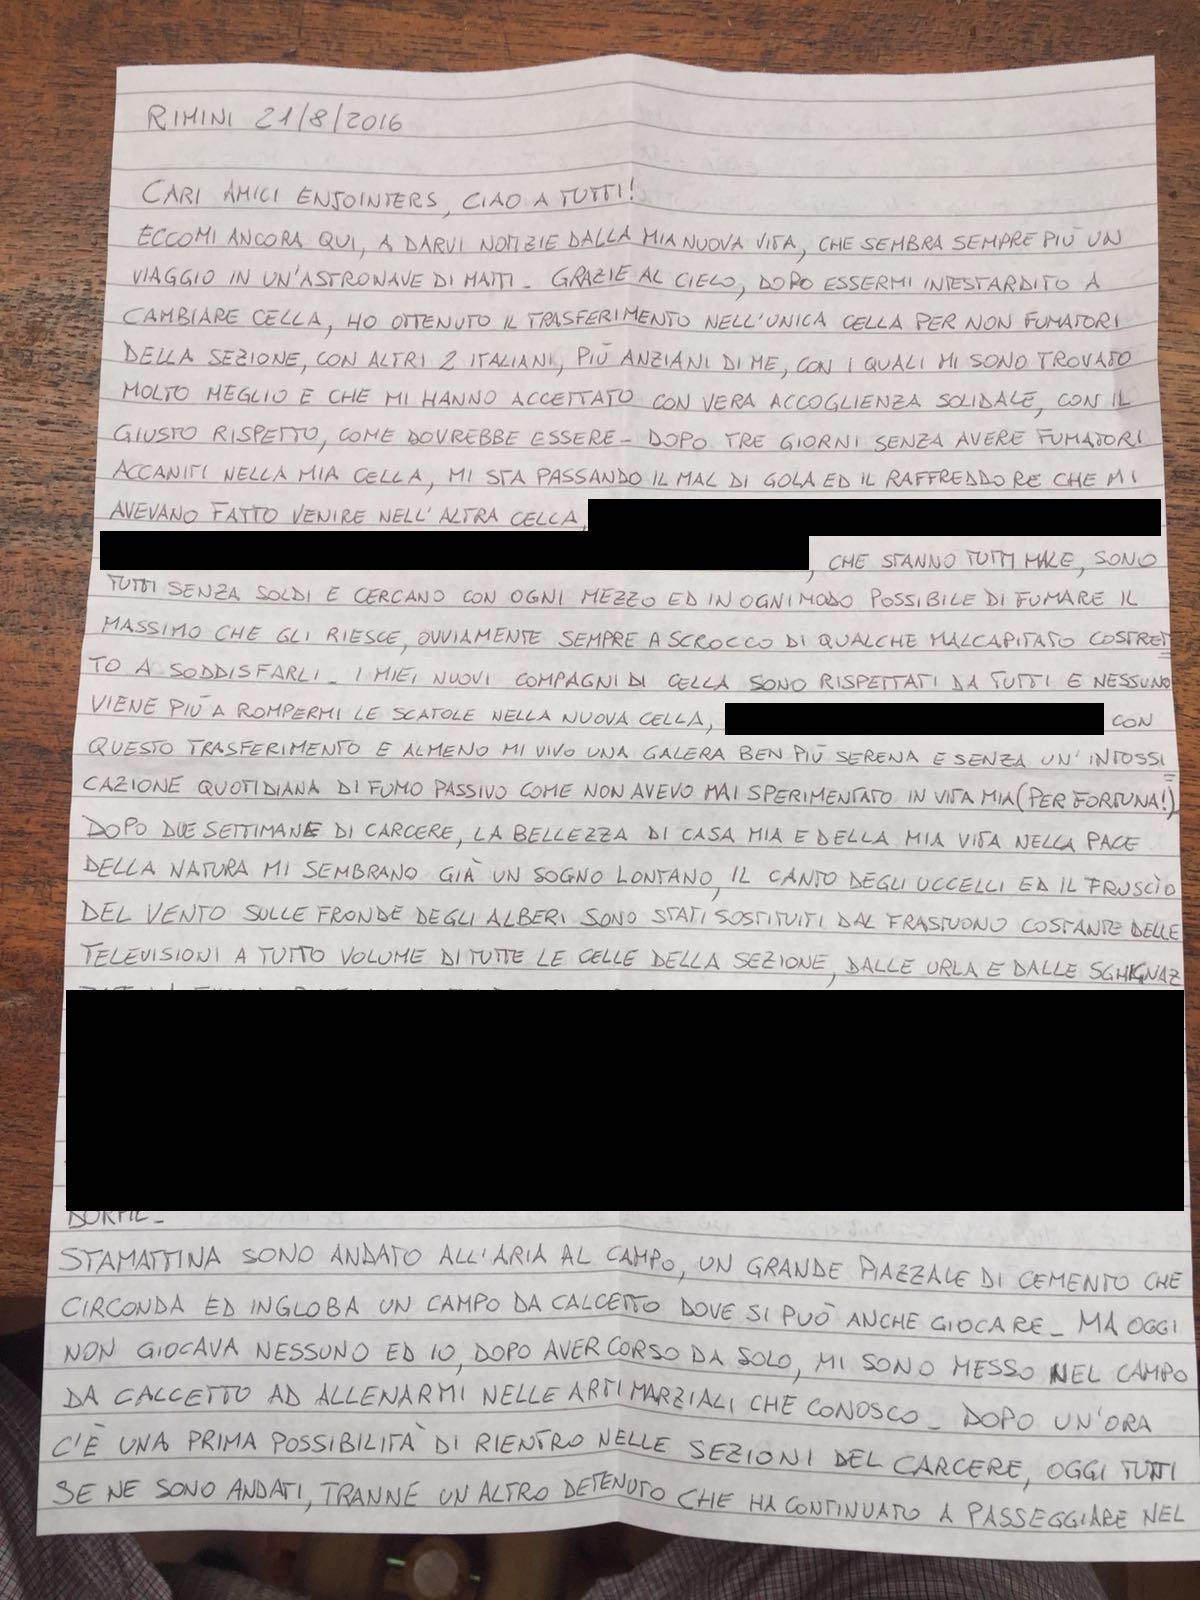 RIMINI 21/8/2016
CARI AMICI ENJOINTERS, CIAO A TUTTI!
ECCOMI ANCORA QUI, A DARVI NOTIZIE DALLA MIA NUOVA VITA, CHE SEMBRA SEMPRE PIÙ UN
VIAGGIO IN UN'ASTRONAVE DI MATTI_ GRAZIE AL CIELO, DOPO ESSERMI INTESTARDITO A
CAMBIARE CELLA, HO OTTENUTO IL TRASFERIMENTO NELL'UNICA CELLA PER NON FUMATORI
DELLA SEZIONE, CON ALTRI 2 ITALIANI, PIÙ ANZIANI DI ME, CON I QUALI MI SONO TROVATO
MOLTO MEGLIO E CHE MI HANNO ACCETTATO CON VERA ACCOGLIENZA SOLIDALE, CON IL
GIUSTO RISPETTO, COME DOVREBBE ESSERE_ DOPO TRE GIORNI SENZA AVERE FUMATORI
ACCANITI NELLA MIA CELLA, MI STA PASSANDO IL MAL DI GOLA ED IL RAFFREDDORE CHE MI
AVEVANO FATTO VENIRE NELL'ALTRA CELLA,
, CHE STANNO TUTTI MALE, SONO
TUTTI SENZA SOLDI E CERCANO CON OGNI MEZZO ED IN OGNI MODO POSSIBILE DI FUMARE IL
MASSIMO CHE GLI RIESCE, OVVIAMENTE SEMPRE A SCROCCO DI QUALCHE MALCAPITATO COSTRET=
TO A SODDISFARLI_ I MIEI NUOVI COMPAGNI DI CELLA SONO RISPETTATI DA TUTTI E NESSUNO
VIENE PIÙ A ROMPERMI LE SCATOLE NELLA NUOVA CELLA, CON
QUESTO TRASFERIMENTO E ALMENO MI VIVO UNA GALERA BEN PIÙ SERENA E SENZA UN'INTOSSI=
CAZIONE QUOTIDIANA DI FUMO PASSIVO COME NON AVEVO MAI SPERIMENTATO IN VITA MIA (PER FORTUNA!)
DOPO DUE SETTIMANE DI CARCERE, LA BELLEZZA DI CASA MIA E DELLA MIA VITA NELLA PACE
DELLA NATURA MI SEMBRANO GIÀ UN SOGNO LONTANO, IL CANTO DEGLI UCCELLI ED IL FRUSCÌO
DEL VENTO SULLE FRONDE DEGLI ALBERI SONO STATI SOSTITUITI DAL FRASTUONO COSTANTE DELLE
TELEVISIONI A TUTTO VOLUME DI TUTTE LE CELLE DELLA SEZIONE, DALLE URLA E DALLE SGHIGNAZ
STAMATTINA SONO ANDATO ALL'ARIA AL CAMPO, UN GRANDE PIAZZALE DI CEMENTO CHE
CIRCONDA ED INGLOBA UN CAMPO DA CALCETTO DOVE SI PUÒ ANCHE GIOCARE_ MA OGGI
NON GIOCAVA NESSUNO ED IO, DOPO AVER CORSO DA SOLO, MI SONO MESSO NEL CAMPO
DA CALCETTO AD ALLENARMI NELLE ARTI MARZIALI CHE CONOSCO_ DOPO UN'ORA
C'È UNA PRIMA POSSIBILITÀ DI RIENTRO NELLE SEZIONI DEL CARCERE, OGGI TUTTI
SE NE SONO ANDATI, TRANNE UN ALTRO DETENUTO CHE HA CONTINUATO A PASSEGGIARE NEL